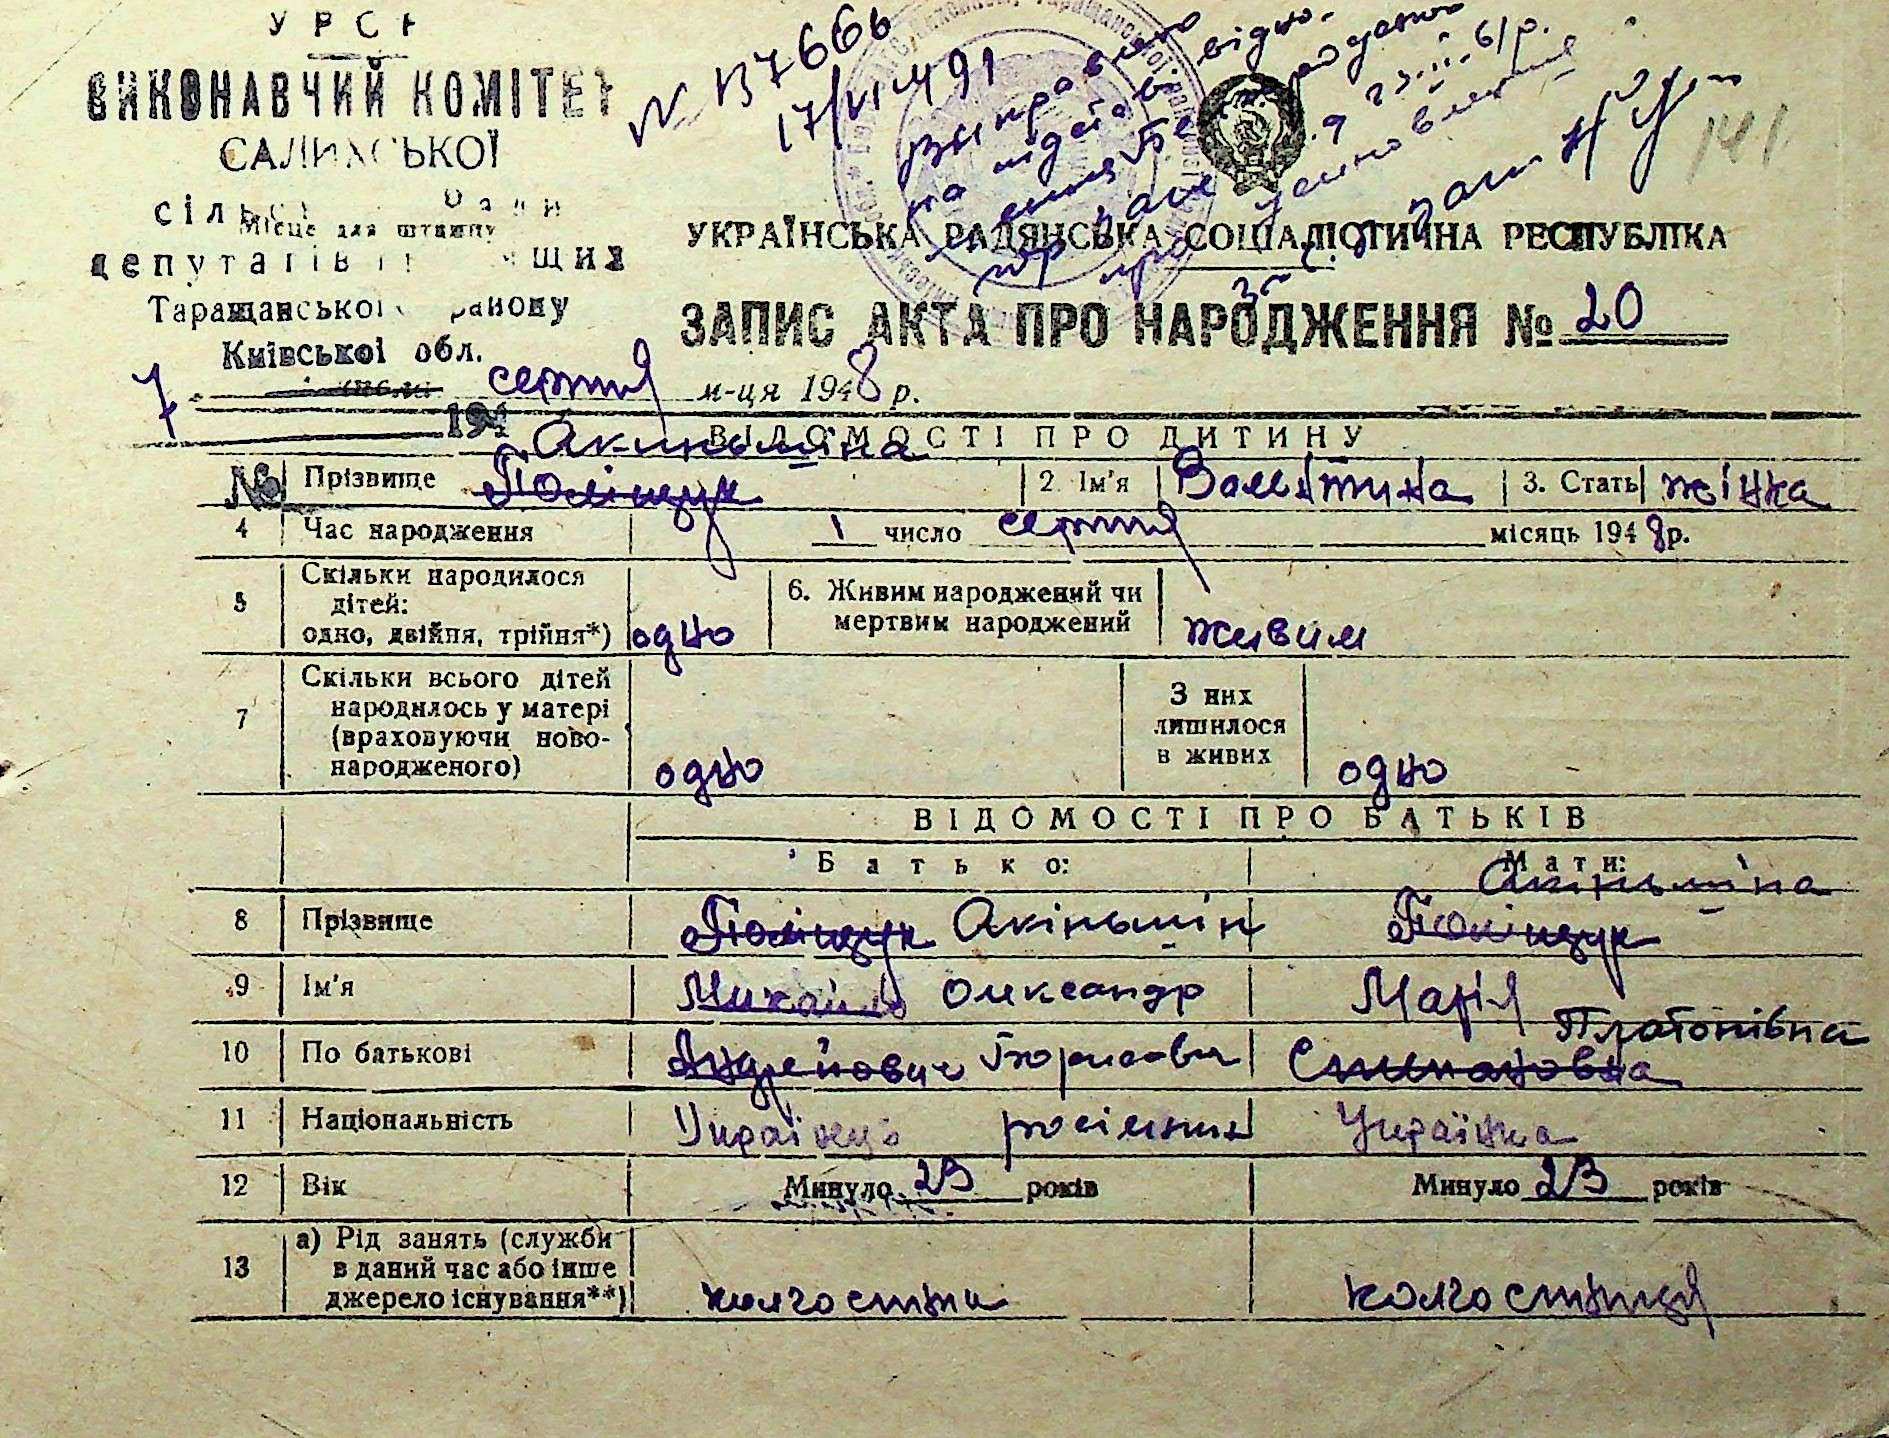 УРСР
ВИКОНАВЧИЙ КОМІТЕТ
САЛИХСЬКОЇ
Місце для штампу
депутатів
Таращанської району
Київської обл.
7 серпня м-ця 1948 р.
194
№ 137666
17/VI-491
виправлено
на підставі
23.II.61р.
141
УКРАЇНСЬКА РАДЯНСЬКА СОЦІАЛІСТИЧНА РЕСПУБЛІКА
ЗАПИС АКТА ПРО НАРОДЖЕННЯ № 20
ВІДОМОСТІ ПРО ДИТИНУ
Акиньшіна
№ Прізвище Поліщук 2. Ім'я Валентина 3. Стать жінка
4 Час народження 1 число серпня місяць 1948 р.
5 Скільки народилося дітей: одно, двійня, трійня*) одно 6. Живим народжений чи мертвим народжений живим
7 Скільки всього дітей народилось у матері (враховуючи новонародженого) одно З них лишилося в живих одно
ВІДОМОСТІ ПРО БАТЬКІВ
Батько: Мати:
Акіньшіна
8 Прізвище Поліщук Акіньшін Поліщук
9 Ім'я Михайло Олександр Марія
Платонівна
10 По батькові Андрейович Борисович Степановна
11 Національність Українець росіянин Українка
12 Вік Минуло 23 років Минуло 23 років
13 а) Рід занять (служби в даний час або інше джерело існування**) колгоспник колгоспниця